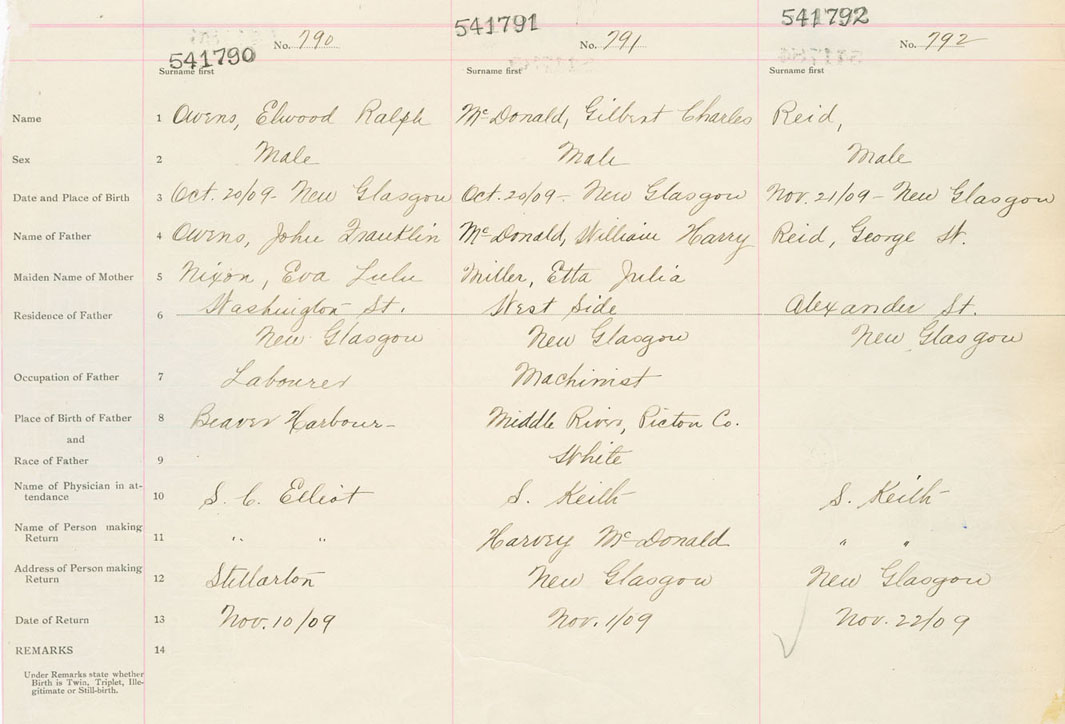 541790 541791 541792
No. 790 No. 791 No. 792
Surname first Surname first Surname first
Name 1 Owens, Elwood Ralph McDonald, Gilbert Charles Reid,
Sex 2 Male Male Male
Date and Place of Birth 3 Oct. 20/09 - New Glasgow Oct. 20/09 - New Glasgow Nov. 21/09 - New Glasgow
Name of Father 4 Owens, John Franklin McDonald, William Harry Reid, George St.
Maiden Name of Mother 5 Nixon, Eva Lulu Miller, Etta Julia
Residence of Father 6 Washington St. West Side Alexander St.
New Glasgow New Glasgow New Glasgow
Occupation of Father 7 Labourer Machinist
Place of Birth of Father 8 Beaver Harbour - Middle River, Pictou Co.
and
Race of Father 9 White
Name of Physician in at-
tendance 10 S. C. Elliot S. Keith S. Keith
Name of Person making
Return 11 " " Harvey McDonald " "
Address of Person making
Return 12 Stellarton New Glasgow New Glasgow
Date of Return 13 Nov. 10/09 Nov. 1/09 Nov. 22/09
REMARKS 14
Under Remarks state whether
Birth is Twin, Triplet, Ille-
gitimate or Still-birth.